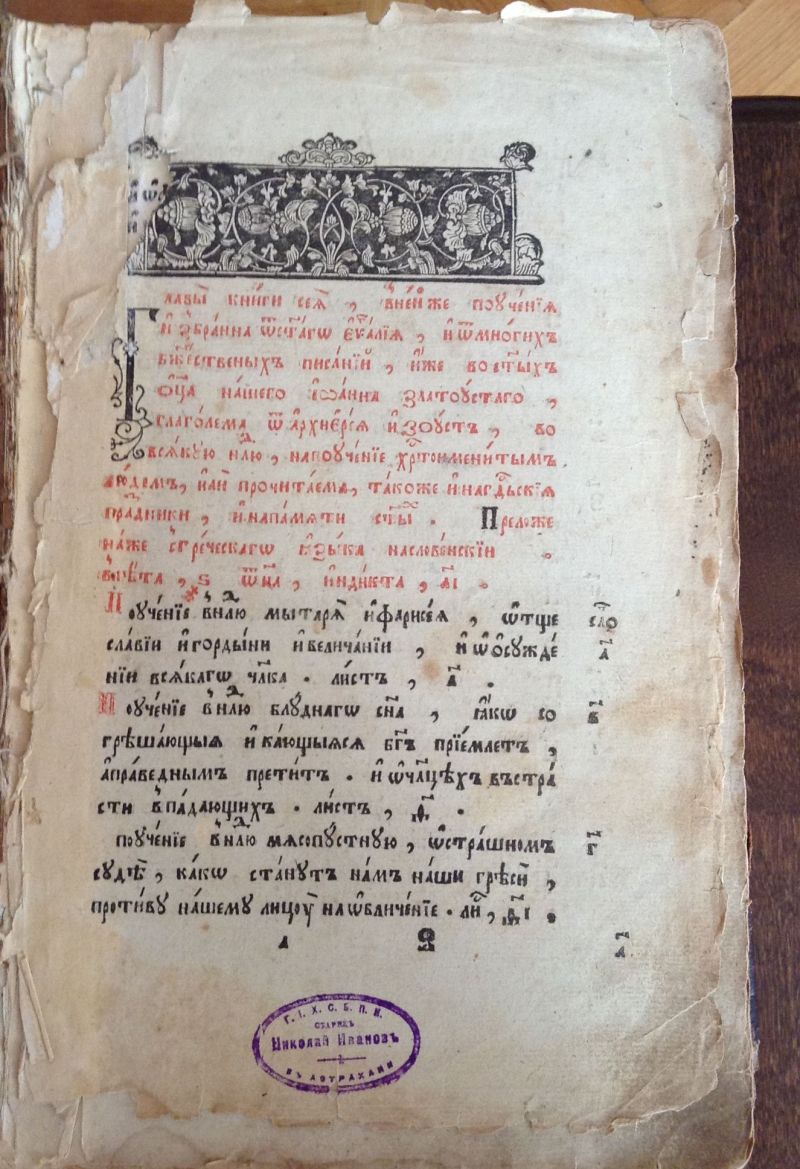 лавы̀ кни́ги сеѧ̀ , в̾не́йже поуче́нїѧ
и҆збра̑нна ѿст҃а́гѡ є҆ѵⷢ҇лїѧ , и҆ѿмно́гихъ
бж҃е́ственыхъ писа́нїй , и҆́же во ст҃ы́хъ
ѻ҆ц҃а̀ на́шего і҆ѡа́нна златоу́стаго ,
глаго́лема ѿ а҆рхїере́ѧ и҆зоу́стъ , во
всѧ́кую нлⷣю , напоуче́нїе хрⷭ҇тоимени́тымъ
лю́демъ , и҆лѝ прочита́ема , та́коже и҆нагдⷭ҇ьскїѧ
пра́здники , и҆напа́мѧти ст҃ы́мъ . Преложе
на́же з̾гре́ческагѡ ѧ҆зы́ка насло́венскїи
влѣ́та , ѕ ѿц҃а , и҆ндїкта , а҃і .
Поуче́нїе в̾нлⷣю мытарѧ̀ и҆фарисе́ѧ , ѡ҆тще
сла́вїи и҆горды́ни и҆велича́нїи , и҆ѡ҆ѡ҆сужде́
нїи всѧ́кагѡ чл҃ка . ли́стъ , а҃ .
сло
а҃
Поуче́нїе в̾нлⷣю блу́днагѡ сн҃а , ꙗ҆́кѡ со
в҃
грѣша́ющыѧ и҆ка́ющыѧсѧ бг҃ъ прїе́млетъ ,
а҆пра́веднымъ прети́тъ . и҆ѡ҆чл҃цѣхъ въстра́
сти в̾па́дающихъ . ли́стъ ,
поуче́нїе в̾нлⷣю мѧсопу́стную , ѡ҆стра́шномъ
г҃
судѣ̀ , ка́кѡ ста́нутъ на́мъ на́ши грѣсѝ ,
проти́ву на́шему лицу̀ наѡ҆бличе́нїе . лиⷭ҇ ,
а҃
Г. І. Х. С. Б. П. Н.
СТАРЕЦЪ
Николай Ивановъ
ВЪ АСТРАХАНИ